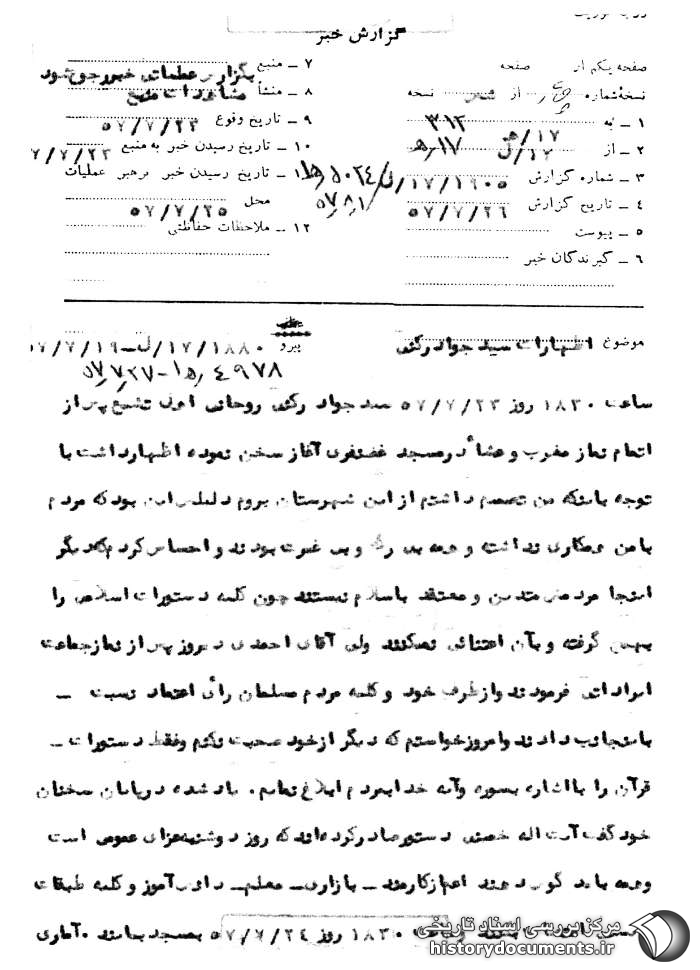 گزارش خبر
صفحه یکم از صفحه
نسخهٔ شماره از نسخه
۱ ـ به ۳۱۲
۲ ـ از ۱۷/هـ
۳ ـ شماره گزارش ۱۷/۱۹۰۵/ل
۴ ـ تاریخ گزارش ۵۷/۷/۲۶
۵ ـ پیوست
۶ ـ گیرندگان خبر
۷ ـ منبع
۸ ـ منشأ مشاهدات منبع
۹ ـ تاریخ وقوع ۵۷/۷/۲۳
۱۰ ـ تاریخ رسیدن خبر به منبع ۷/۷/۲۳
۱۱ ـ تاریخ رسیدن خبر برهبر عملیات
محل ۵۷/۷/۲۵
۱۲ ـ ملاحظات حفاظتی
۵۰۲۴/هـ
۵۷/۸/۱
موضوع اظهارات سید جواد رکنی
پیرو ۱۷/۱۸۸۰/ل ـ ۷/۷/۱۹
۴۹۷۸/هـ - ۵۷/۷/۲۷
ساعت ۱۸۳۰ روز ۵۷/۷/۲۳ سید جواد رکنی روحانی اهل تشیع پس از
اتمام نماز مغرب و عشاء در مسجد غضنفری آغاز سخن نموده اظهار داشت با
توجه باینکه من تصمیم داشتم از این شهرستان بروم دلیلش این بود که مردم
با من همکاری نداشته و همه بی رگ و بی غیرت بودند و احساس کردم که دیگر
اینجا مردمش متدین و معتقد باسلام نیستند چون کلیه دستورات اسلامی را
بهیچ گرفته و بآن اعتنائی نمیکنند ولی آقای احمدی دیروز پس از نماز جماعت
ایراداتی فرمودند و از طرف خود و کلیه مردم مسلمان رأی اعتماد نسبت ـ
باینجانب دادند و امروز خواستم که دیگر از خود صحبت نکنم و فقط دستورات ـ
قرآن را با اشاره بسوره و آیه خدا بمردم ابلاغ نمایم. یاد شده در پایان سخنان
خود گفت آیت اله خمینی دستور صادر کرده‌اند که روز دوشنبه عزای عمومی است
و همه باید گوش دهند اعم از کارمند ـ بازاری ـ معلم ـ دانش آموز و کلیه طبقات
۱۸۳۰ روز ۵۷/۷/۲۴ بمسجد بیایند
مرکز بررسی اسناد تاریخی
historydocuments.ir